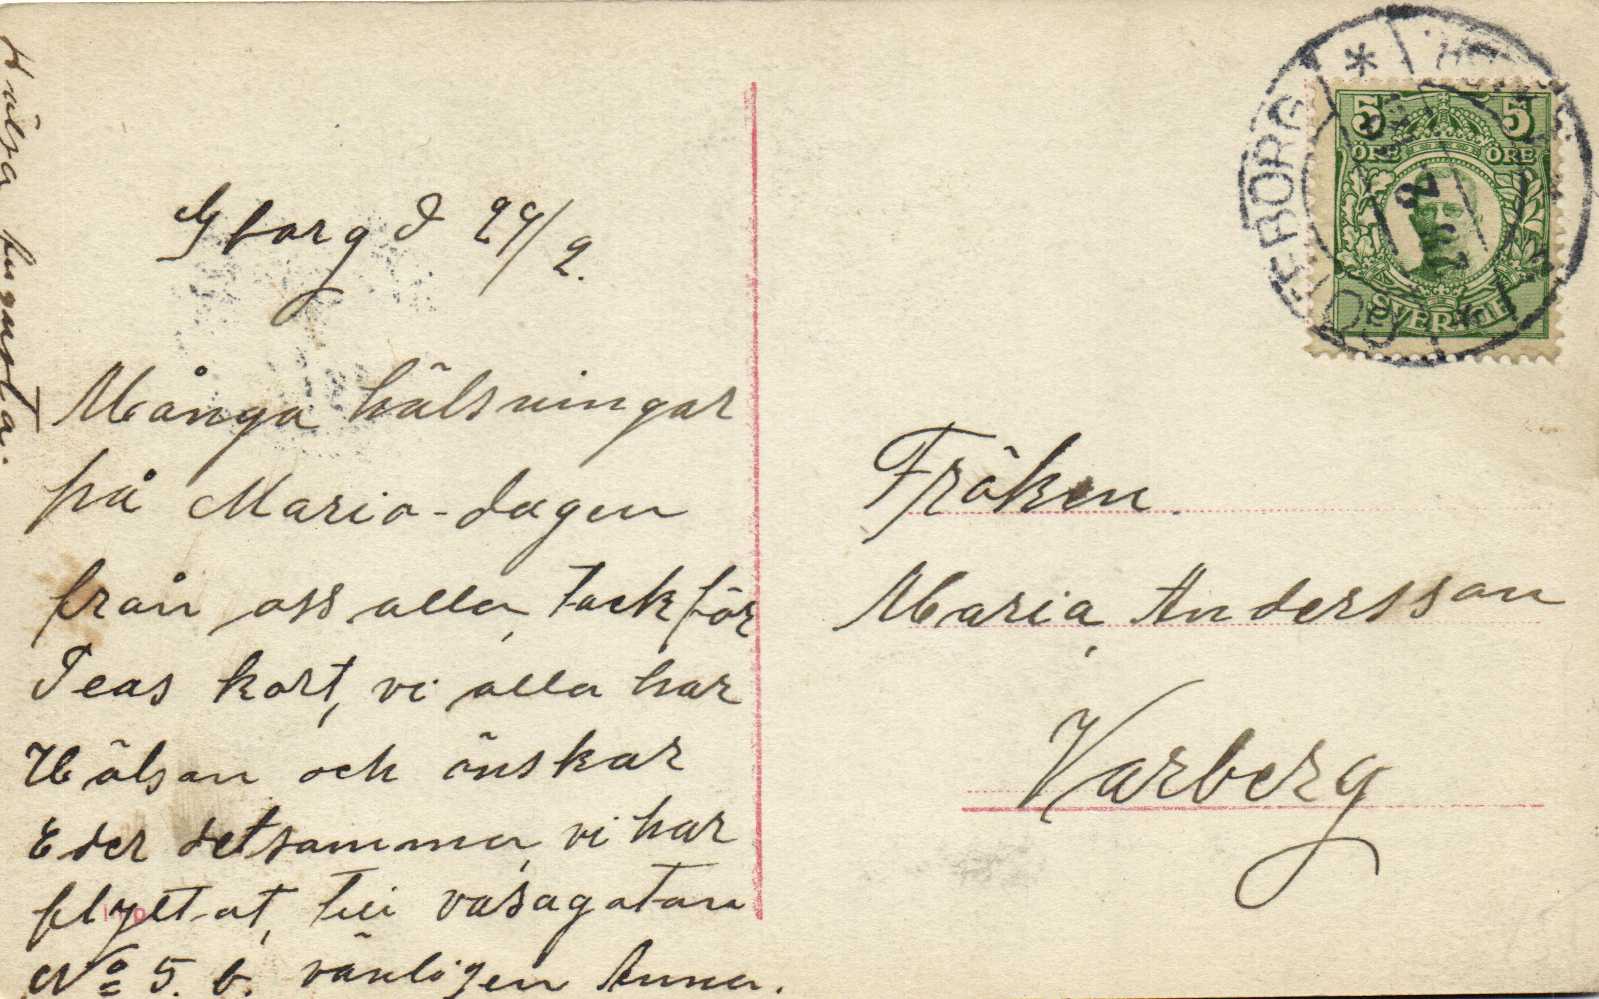 Hälsa Augusta.
Gborg d 29/2.
Många hälsningar
på Maria-dagen
från oss alla, tack för
Teas kort, vi alla har
Hälsan och önskar
Eder detsamma, vi har
flyttat, till vasagatan
No 5. b. vänligen Anna.
GÖTEBORG
29 2
5 5
ÖRE ÖRE
SVERIGE
Fröken.
Maria, Andersson
Varberg